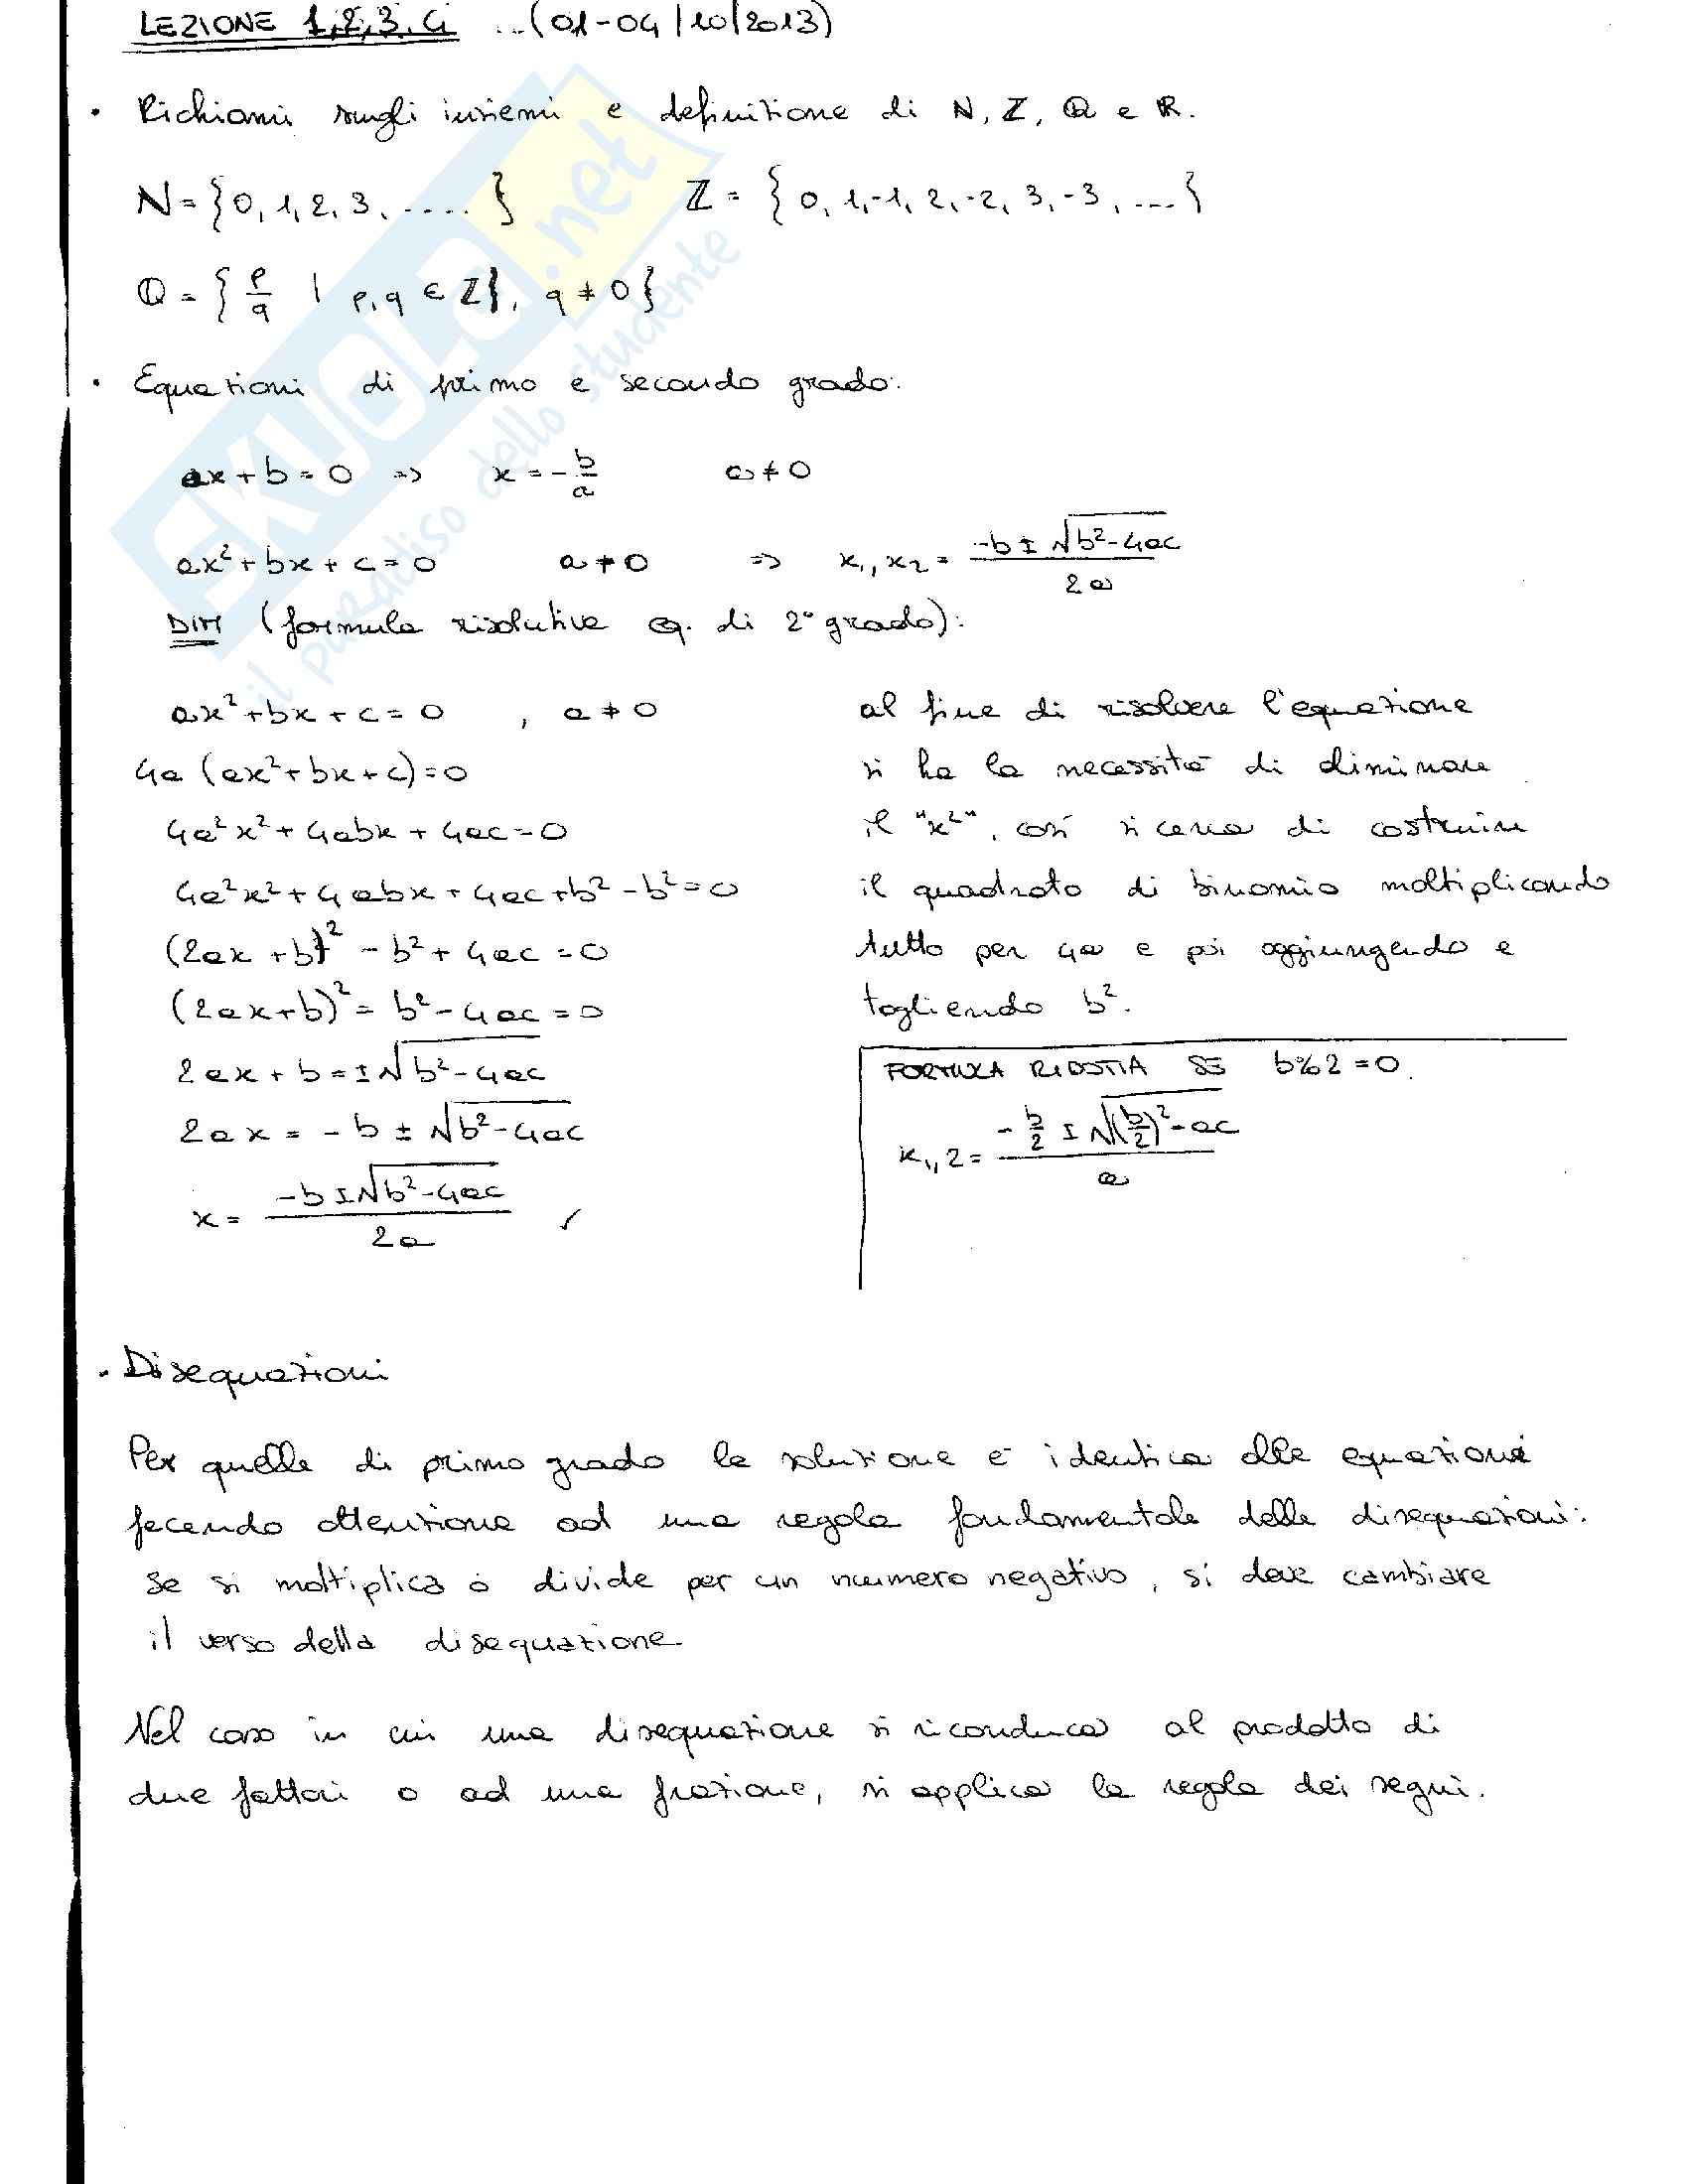 LEZIONE 1,2,3,4 ...(01-04/10/2013)
• Richiami sugli insiemi e definizione di N, Z, Q e R.
N = {0, 1, 2, 3, .....} Z = {0, 1, -1, 2, -2, 3, -3, ....}
Q = { p/q | p, q ∈ Z}, q ≠ 0}
• Equazioni di primo e secondo grado:
ax + b = 0 => x = - b/a a ≠ 0
ax² + bx + c = 0 a ≠ 0 => x₁, x₂ = (-b ± √(b² - 4ac)) / 2a
DIM (formula risolutiva eq. di 2° grado):
ax² + bx + c = 0 , a ≠ 0
4a (ax² + bx + c) = 0
4a²x² + 4abx + 4ac = 0
4a²x² + 4abx + 4ac + b² - b² = 0
(2ax + b)² - b² + 4ac = 0
(2ax + b)² = b² - 4ac = 0
2ax + b = ± √(b² - 4ac)
2ax = - b ± √(b² - 4ac)
x = (-b ± √(b² - 4ac)) / 2a ✓
al fine di risolvere l'equazione
si ha la necessità di eliminare
il "x²", così si cerca di costruire
il quadrato di binomio moltiplicando
tutto per 4a e poi aggiungendo e
togliendo b².
FORMULA RIDOTTA SE b%2 = 0.
x₁,₂ = (- b/2 ± √((b/2)² - ac)) / a
• Disequazioni
Per quelle di primo grado la soluzione è identica alle equazioni
facendo attenzione ad una regola fondamentale delle disequazioni:
se si moltiplica o divide per un numero negativo, si deve cambiare
il verso della disequazione.
Nel caso in cui una disequazione si riconduca al prodotto di
due fattori o ad una frazione, si applica la regola dei segni.
SKUOLA.net
il paradiso dello studente